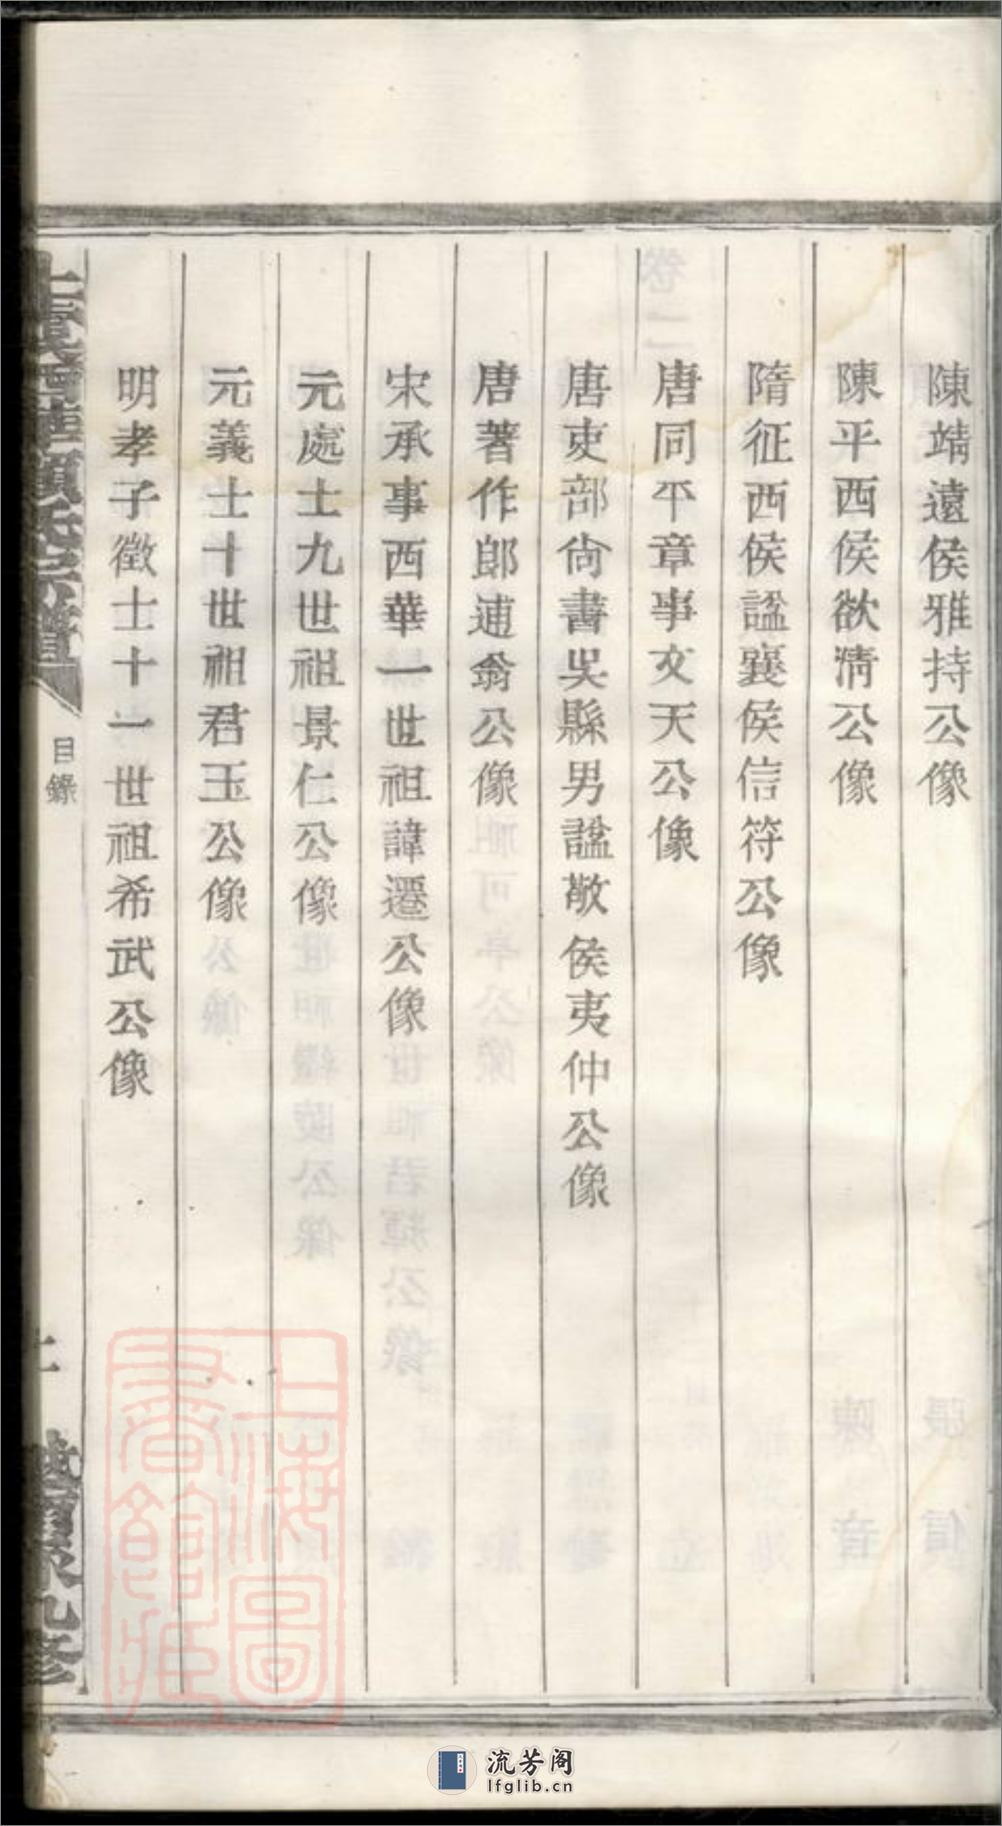 陳靖遠侯雅持公像
陳平西侯欲清公像
隋征西侯諡襄侯信符公像
唐同平章事文天公像
唐吏部尙書吳縣男諡敬侯夷仲公像
唐著作郎逋翁公像
宋承事西華一世祖諱遷公像
元處士九世祖景仁公像
元義士十世祖君玉公像
明孝子徵士十一世祖希武公像
目錄
九修
上海圖書館藏
流芳阁
lfglib.cn